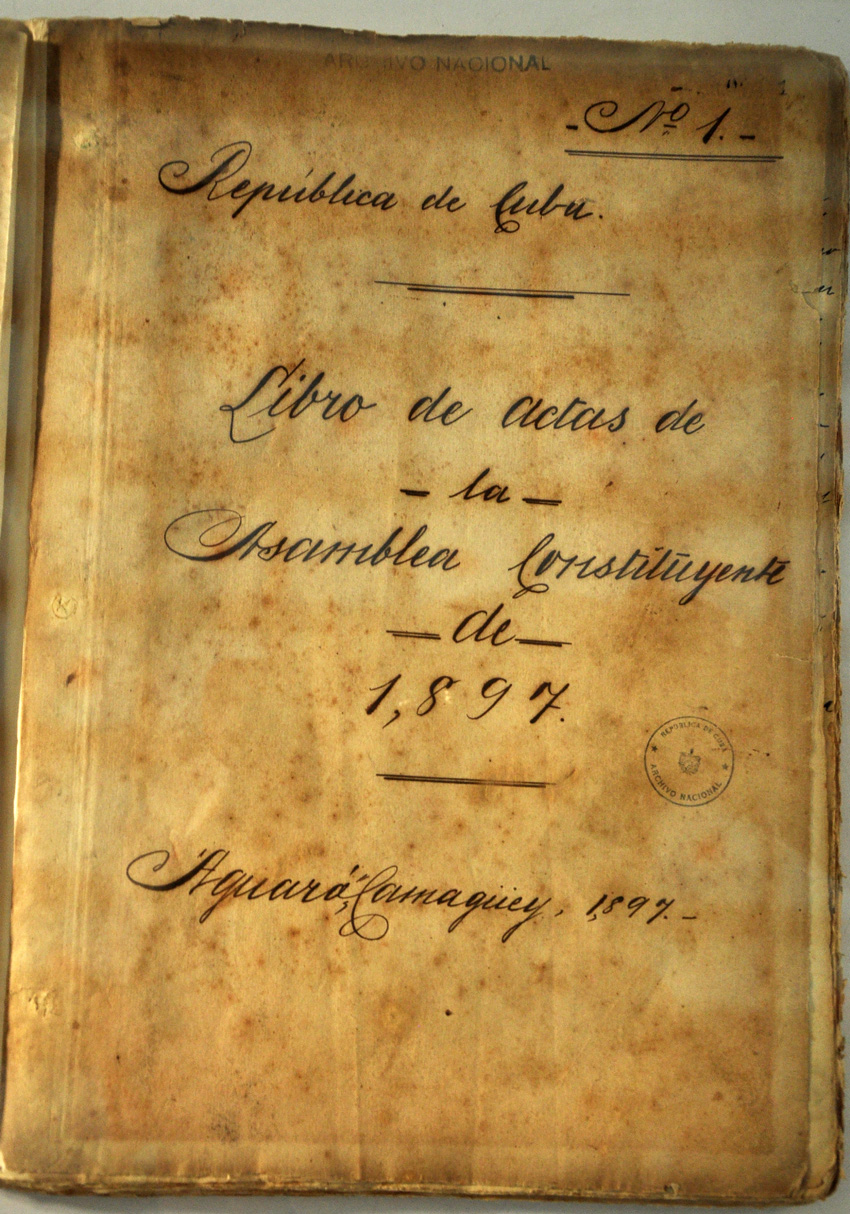 ARCHIVO NACIONAL
- Nº 1. -
República de Cuba.
Libro de actas de
- la -
Asamblea Constituyente
- de -
1,897.
REPÚBLICA DE CUBA
ARCHIVO NACIONAL
"Aguará", Camagüey, 1,897. -